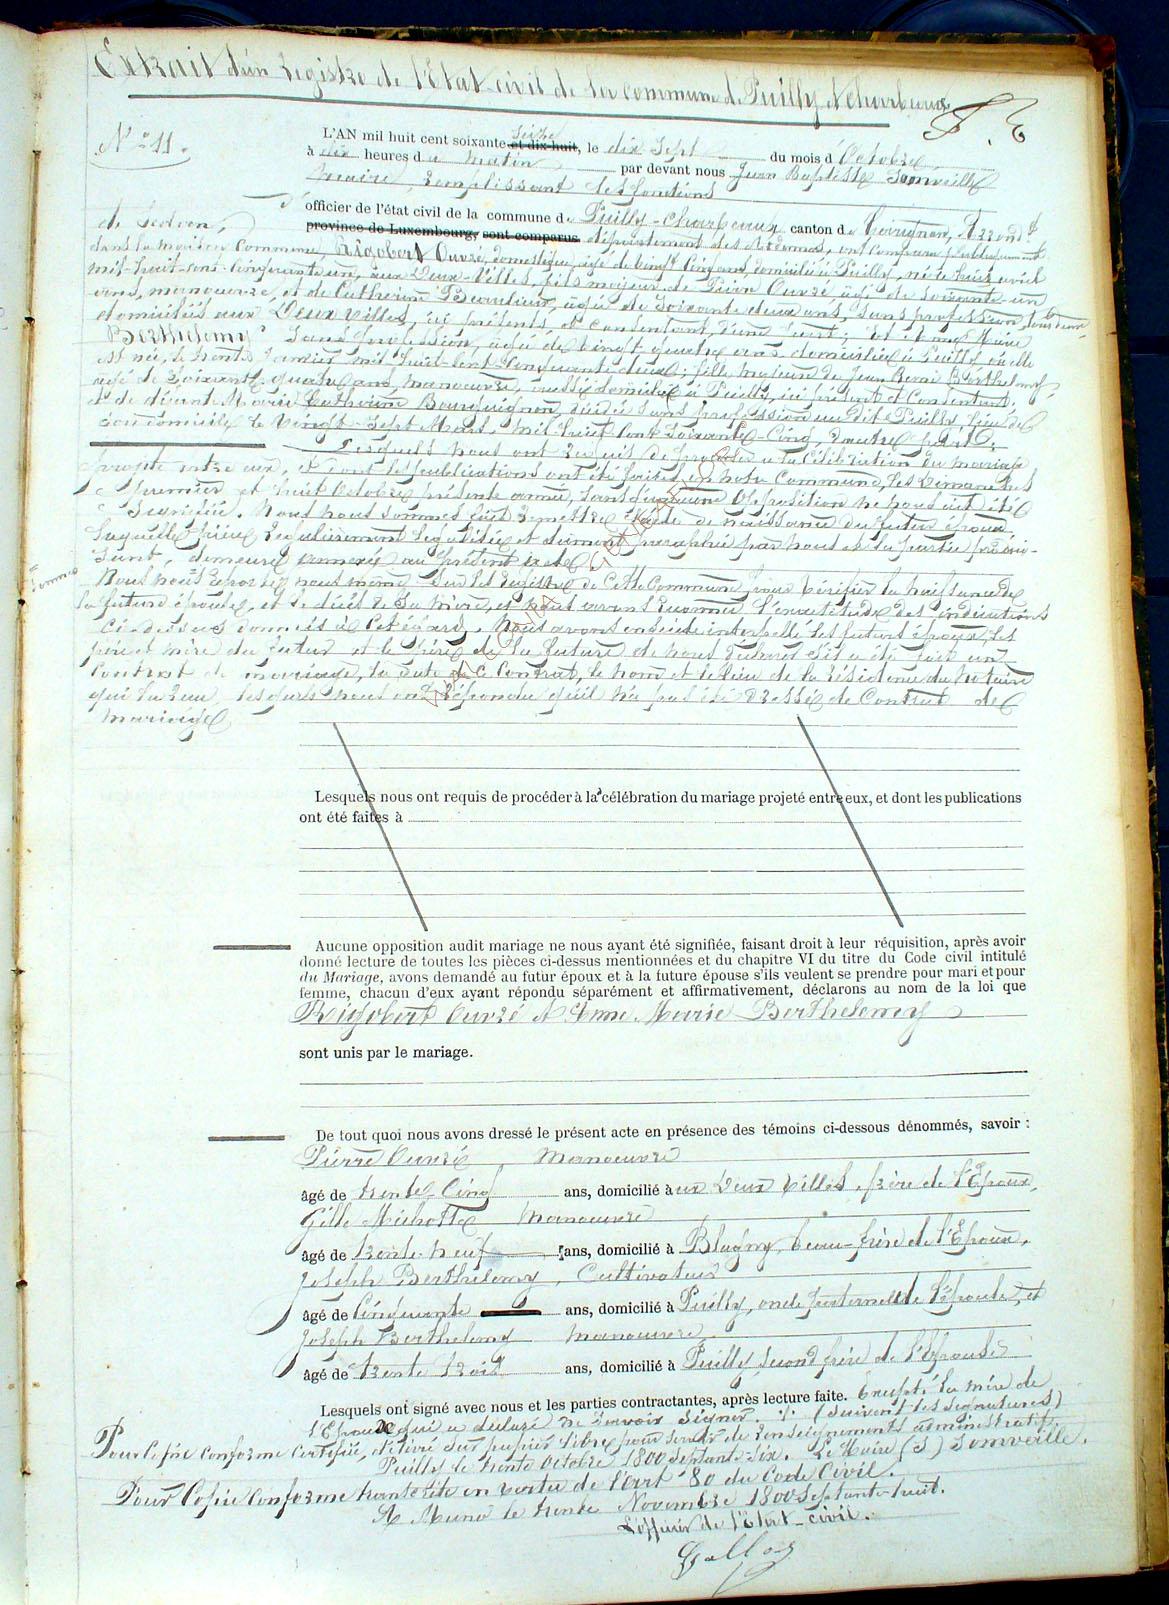 Extrait d'un Registre de l'Etat-civil de la commune de Puilly et Charbeaux
N° 11.
L'AN mil huit cent soixante et dix-huit, seize le dix sept du mois d'Octobre
à dix heures du matin par devant nous Jean Baptiste Somveille
Maire, remplissant les fonctions
officier de l'état civil de la commune de Puilly-Charbeaux canton de Carignan, Arrondt
de Sedan, province de Luxembourg, sont comparus département des Ardennes, ont comparu publiquement
dans la maison Commune, Rigobert Ouvré, domestique, agé de vingt cinq ans, domicilié à Puilly, né le treize avril
mil-huit-cent-cinquante un, aux Deux-Villes, fils majeur de Ouvré, âgé de soixante-un
ans, manouvre, et de Catherine Beaulieux, agée de soixante deux ans, sans profession, tous deux
domiciliés aux Deux Villes, ici présents et consentant, d'une part; Et Anne Marie
Berthelemy Sans profession, agée de vingt quatre ans domiciliée à Puilly où elle
est née, le trente Janvier mil-huit-cent-cinquante deux; fille majeure de Jean Remi Berthelemy
agé de soixante-quatre ans, manouvre, domicilié à Puilly, ici présent et consentant,
et de défunte Marie Catherine Bourguignon, décédée sans profession au dit Puilly, lieu de
son domicile le vingt-sept Mars mil huit cent soixante-cinq, d'autre part.
Lesquels nous ont requis de procéder à la célébration du mariage
projeté entre eux, et dont les publications ont été faites en notre Commune, les Dimanches
premier et huit Octobre présente année, sans qu'aucune Opposition ne nous ait été
Signifiée. Nous nous sommes fait remettre l'acte de naissance du futur époux
laquelle pièce régulièrement légalisée et dûment paraphée par nous et la partie produi-
sant, demeure annexée au présent acte.
Nous nous sommes reportés nous même sur les registres de cette Commune, pour vérifier la naissance de
la future épouse, et le décès de sa mère, et nous avons reconnu l'exactitude des indications
ci-dessus données à cet égard. Nous avons ensuite interpellé les futurs époux, les
père et mère du futur et le père de la future de nous déclarer s'il a été fait un
Contrat de mariage, la date de ce Contrat, le nom et le lieu de la résidence du Notaire
qui l'a reçu, lesquels nous ont répondu qu'il n'a pas été Dressé de Contrat de
mariage
Lesquels nous ont requis de procéder à la célébration du mariage projeté entre eux, et dont les publications
ont été faites à
Aucune opposition audit mariage ne nous ayant été signifiée, faisant droit à leur réquisition, après avoir
donné lecture de toutes les pièces ci-dessus mentionnées et du chapitre VI du titre du Code civil intitulé
du Mariage, avons demandé au futur époux et à la future épouse s'ils veulent se prendre pour mari et pour
femme, chacun d'eux ayant répondu séparément et affirmativement, déclarons au nom de la loi que
Rigobert Ouvré et Anne Marie Berthelemy
sont unis par le mariage.
De tout quoi nous avons dressé le présent acte en présence des témoins ci-dessous dénommés, savoir :
Pierre Ouvré, Manouvre
âgé de trente Cinq ans, domicilié à ux Deux Villes, frère de l'Epoux,
Gille Michotte Manouvre
âgé de trente-neuf ans, domicilié à Blagny, beau-frère de l'Epoux,
Joseph Berthelemy, Cultivateur
âgé de Cinquante ans, domicilié à Puilly, oncle paternel de l'épouse, et
Joseph Berthelemy Manouvre,
âgé de trente trois ans, domicilié à Puilly, second frère de l'Epouse
Lesquels ont signé avec nous et les parties contractantes, après lecture faite. Excepté la mère de
l'Epoux qui a déclaré ne savoir signer. (Suivent les signatures)
Pour Copie conforme certifiée, délivré sur papier libre pour servir de renseignements administratifs.
Puilly le trente Octobre 1800 septante-six. Le Maire (S) Somveille.
Pour Copie conforme transcrite en vertu de l'art 80 du Code Civil.
A Muno le trente Novembre 1800 septante-huit.
L'officier de l'Etat-civil.